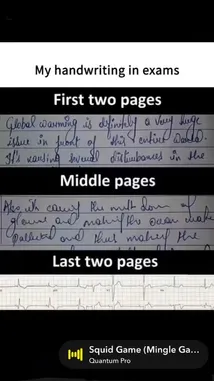 My handwriting in exams
First two pages
Global warming is definitely a very huge
issue in front of this entire world.
It's causing several disturbances in the
Middle pages
Also it's the
and the ocean
polluted and thus the
Last two pages
Squid Game (Mingle Ga...
Quantum Pro